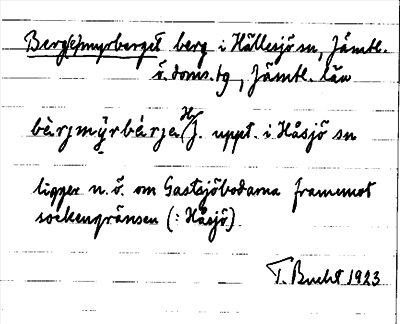 Berg(s)myrberget berg i Hällesjö sn, Jämtl.
ö. doms. tg, Jämtl. län
bärjmyrbärja (H) J. uppt. i Håsjö sn
ligger n.ö. om Gastsjöbodarna frammot
sockengränsen (: Håsjö).
T. Bucht 1923